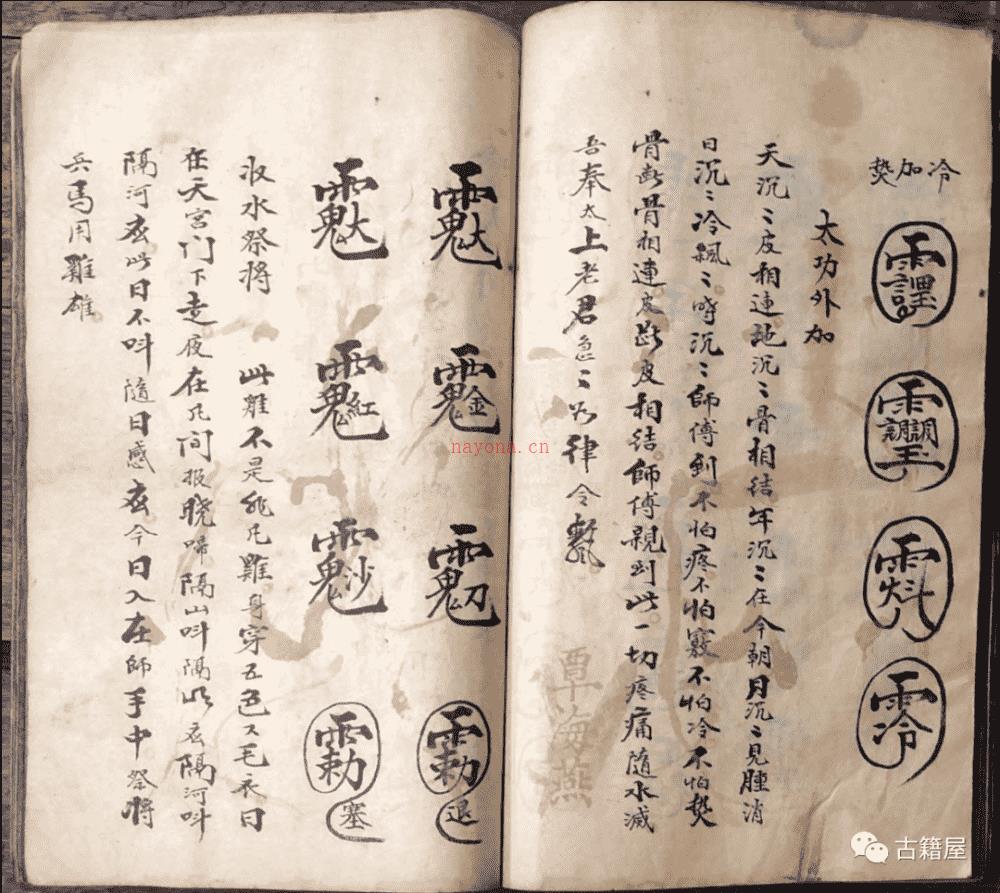 冷加焚
太功外加
天沉〻皮相連地沉〻骨相结年沉〻在今朝月沉〻見腫消
日沉〻冷飄〻時沉〻師傅到不怕疼不怕竅不怕冷不怕焚
骨断骨相連皮断皮相结師傅親到此一切疼痛隨水滅
吾奉太上老君急〻如律令
覃海燕
退
塞
收水祭將 此雞不是非凡雞身穿五色〻毛衣日
在天宮门下走夜在凡间报晓啼隔山呌隔隔河呌
隔河此日不呌隨日感今日入在師手中祭將
兵馬用雞雄
nayona.cn
古籍屋